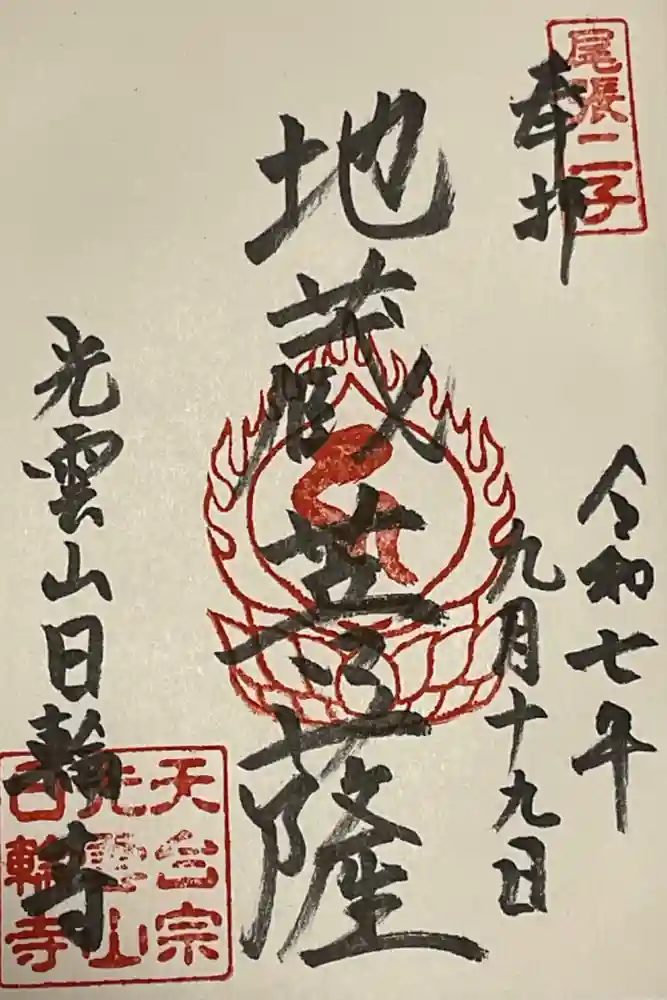 奉拝
尾張二子
令和七年
九月十九日
地蔵菩薩
光雲山日輪寺
天台宗
光雲山
日輪寺